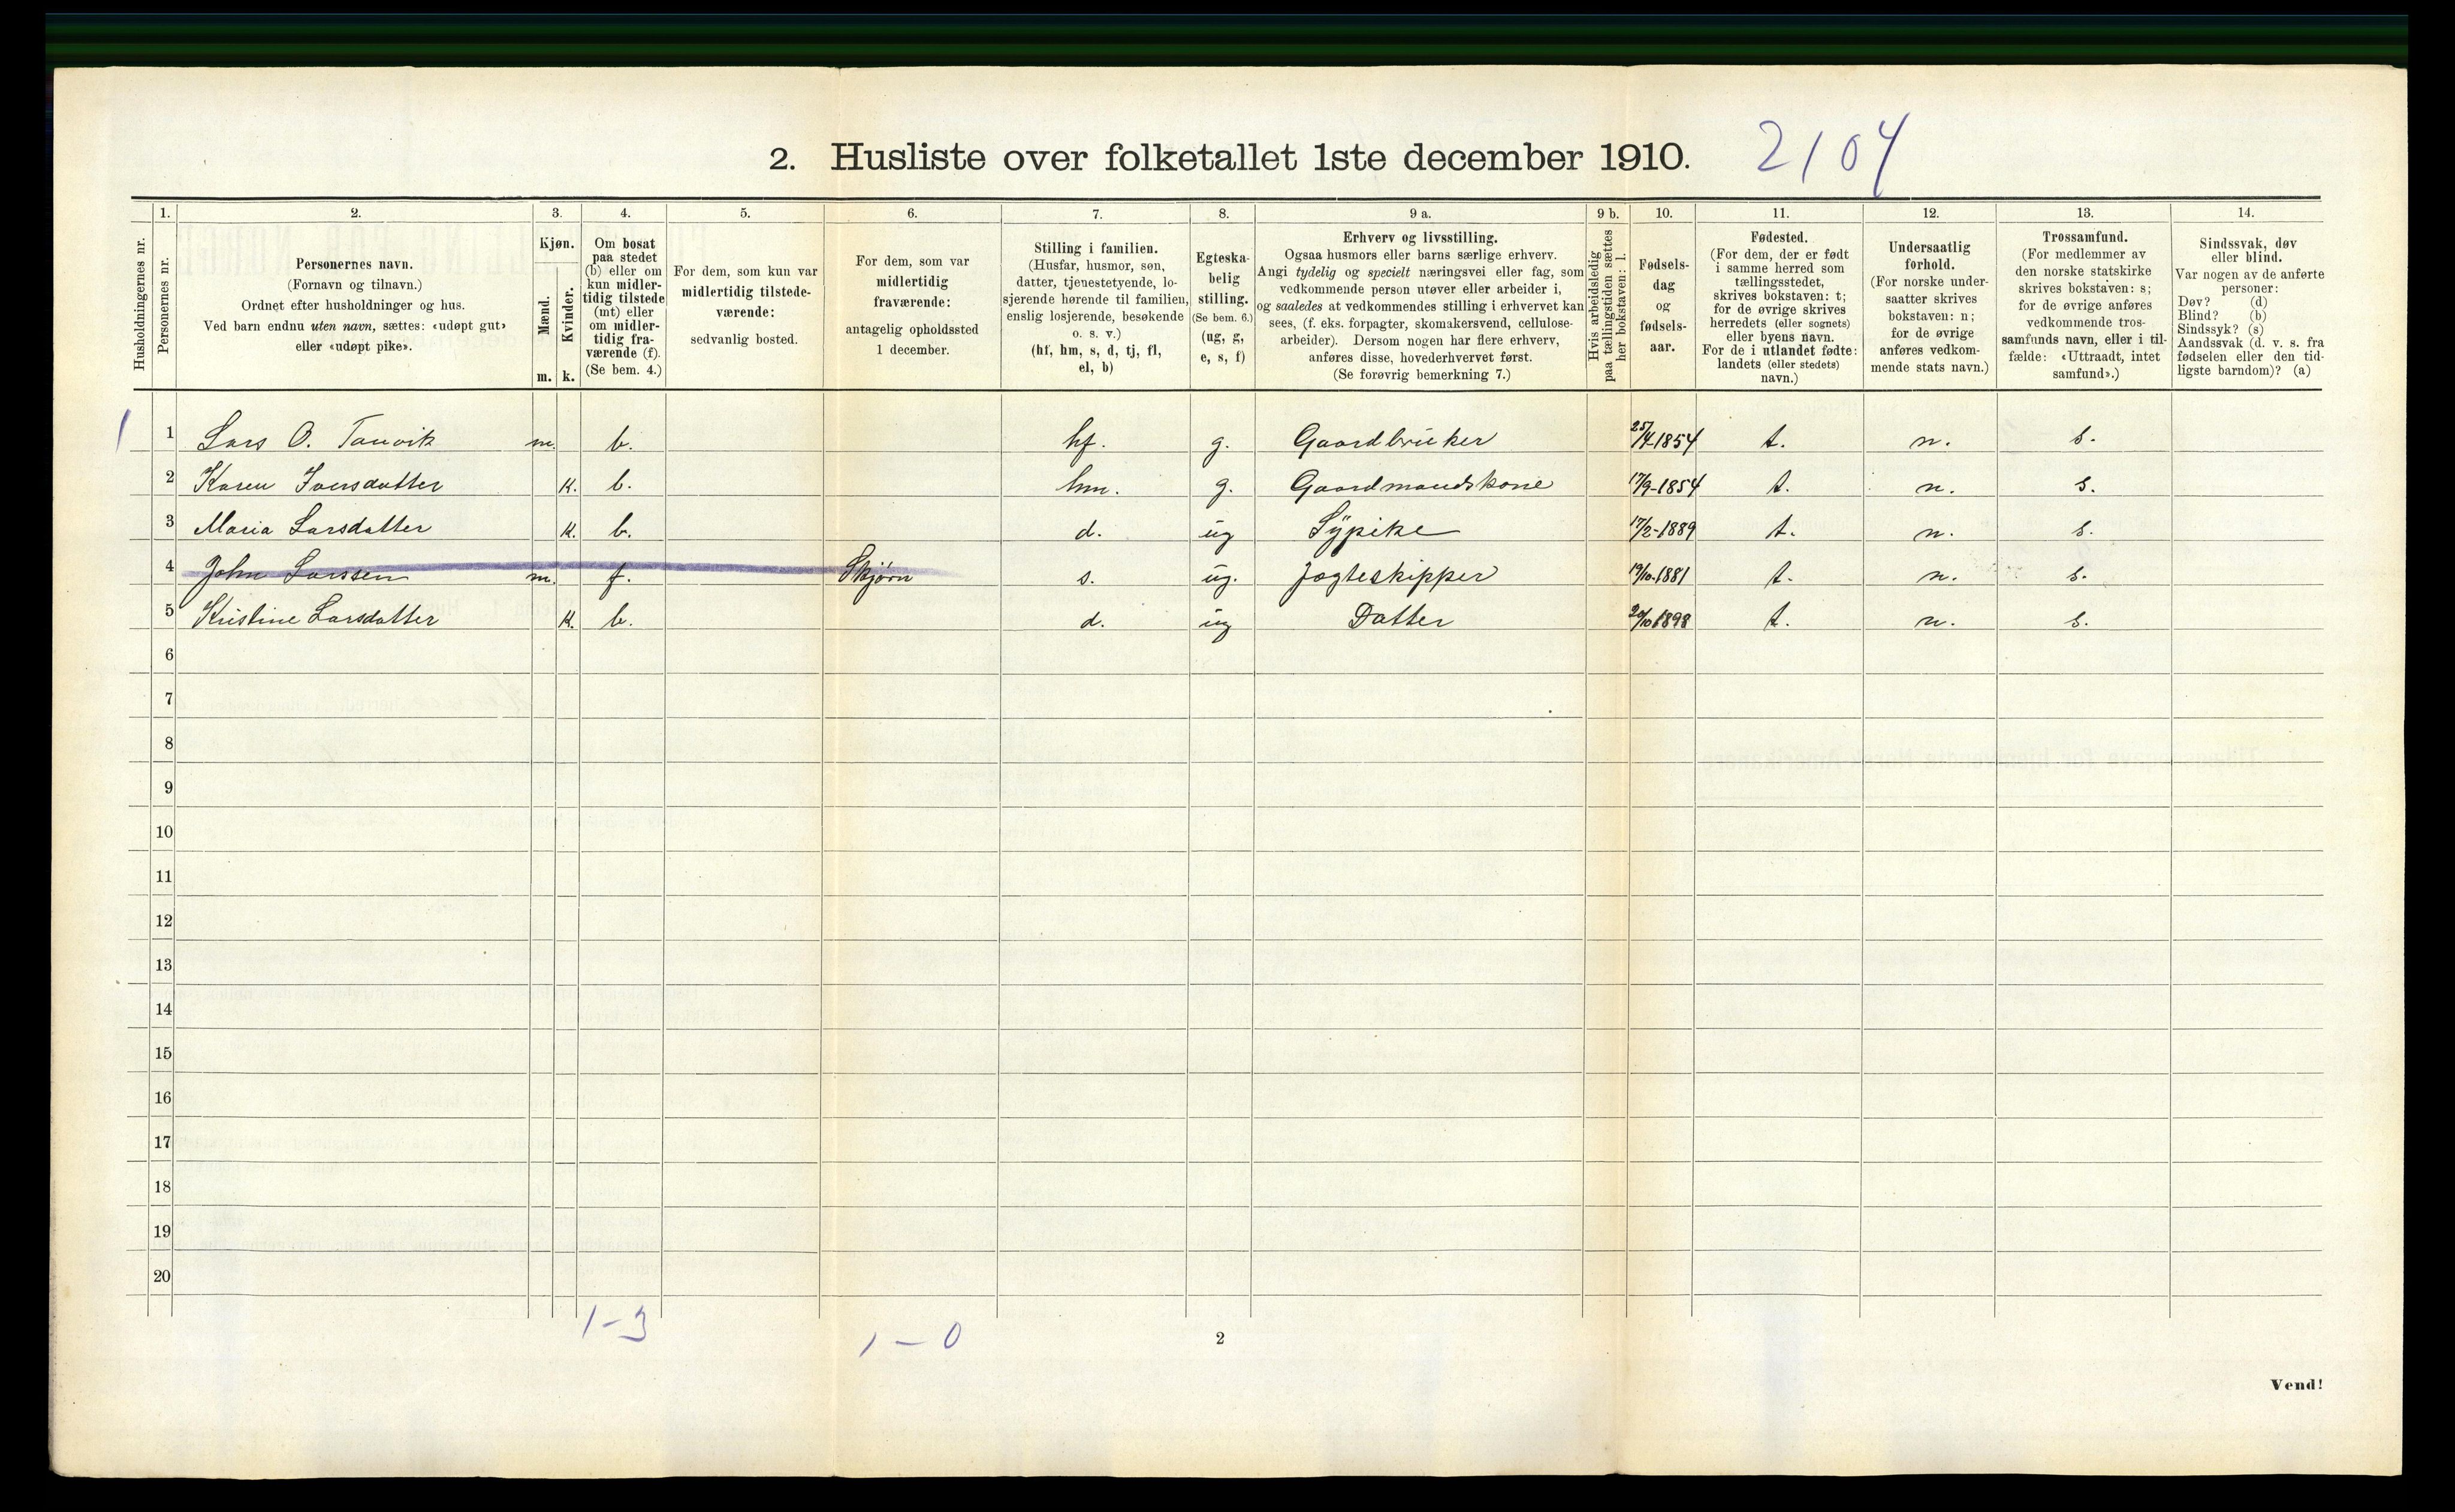 2. Husliste over folketallet 1ste december 1910. 2104
1. 2. 3. 4. 5. 6. 7. 8. 9 a. 9 b. 10. 11. 12. 13. 14.
Husholdningernes nr.
Personernes nr.
Personernes navn.
(Fornavn og tilnavn.)
Ordnet efter husholdninger og hus.
Ved barn endnu uten navn, sættes: «udøpt gut»
eller «udøpt pike».
Kjøn.
Mænd.
Kvinder.
m. k.
Om bosat
paa stedet
(b) eller om
kun midler-
tidig tilstede
(mt) eller
om midler-
tidig fra-
værende (f).
(Se bem. 4.)
For dem, som kun var
midlertidig tilstede-
værende:
sedvanlig bosted.
For dem, som var
midlertidig
fraværende:
antagelig opholdssted
1 december.
Stilling i familien.
(Husfar, husmor, søn,
datter, tjenestetyende, lo-
sjerende hørende til familien,
enslig losjerende, besøkende
o. s. v.)
(hf, hm, s, d, tj, fl,
el, b)
Egteska-
belig
stilling.
(Se bem. 6.)
(ug, g,
e, s, f)
Erhverv og livsstilling.
Ogsaa husmors eller barns særlige erhverv.
Angi tydelig og specielt næringsvei eller fag, som
vedkommende person utøver eller arbeider i,
og saaledes at vedkommendes stilling i erhvervet kan
sees, (f. eks. forpagter, skomakersvend, cellulose-
arbeider). Dersom nogen har flere erhverv,
anføres disse, hovederhvervet først.
(Se forøvrig bemerkning 7.)
Hvis arbeidsledig
paa tællingstiden sættes
her bokstaven: l.
Fødsels-
dag
og
fødsels-
aar.
Fødested.
(For dem, der er født
i samme herred som
tællingsstedet,
skrives bokstaven: t;
for de øvrige skrives
herredets (eller sognets)
eller byens navn.
For de i utlandet fødte:
landets (eller stedets)
navn.)
Undersaatlig
forhold.
(For norske under-
saatter skrives
bokstaven: n;
for de øvrige
anføres vedkom-
mende stats navn.)
Trossamfund.
(For medlemmer av
den norske statskirke
skrives bokstaven: s;
for de øvrige anføres
vedkommende tros-
samfunds navn, eller i til-
fælde: «Uttraadt, intet
samfund».)
Sindssvak, døv
eller blind.
Var nogen av de anførte
personer:
Døv? (d)
Blind? (b)
Sindssyk? (s)
Aandssvak (d. v. s. fra
fødselen eller den tid-
ligste barndom)? (a)
1 1 Lars O. Tanvik m. b. hf. g. Gaardbruker 25/4-1854 t. n. s.
2 Karen Iversdatter k. b. hm. g. Gaardmandskone 17/9-1854 t. n. s.
3 Maria Larsdatter k. b. d. ug Sypike 17/2-1889 t. n. s.
4 John Larssen m. f. Skjørn s. ug. Jægteskipper 19/10-1881 t. n. s.
5 Kristine Larsdatter k. b. d. ug Datter 20/10 1898 t. n. s.
6
7
8
9
10
11
12
13
14
15
16
17
18
19
20
1-3
1-0
2
Vend!